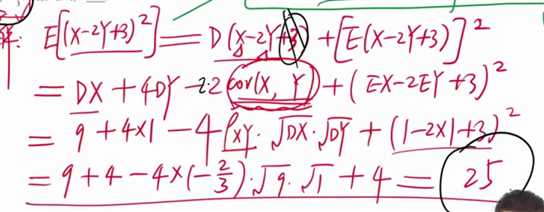 解: E[(X-2Y+3)²] = D(X-2Y+3) + [E(X-2Y+3)]²
= DX + 4DY - 2·2 cov(X, Y) + (EX - 2EY + 3)²
= 9 + 4×1 - 4ρxy·√DX·√DY + (1-2×1+3)²
= 9 + 4 - 4×(-2/3)·√9·√1 + 4 = 25